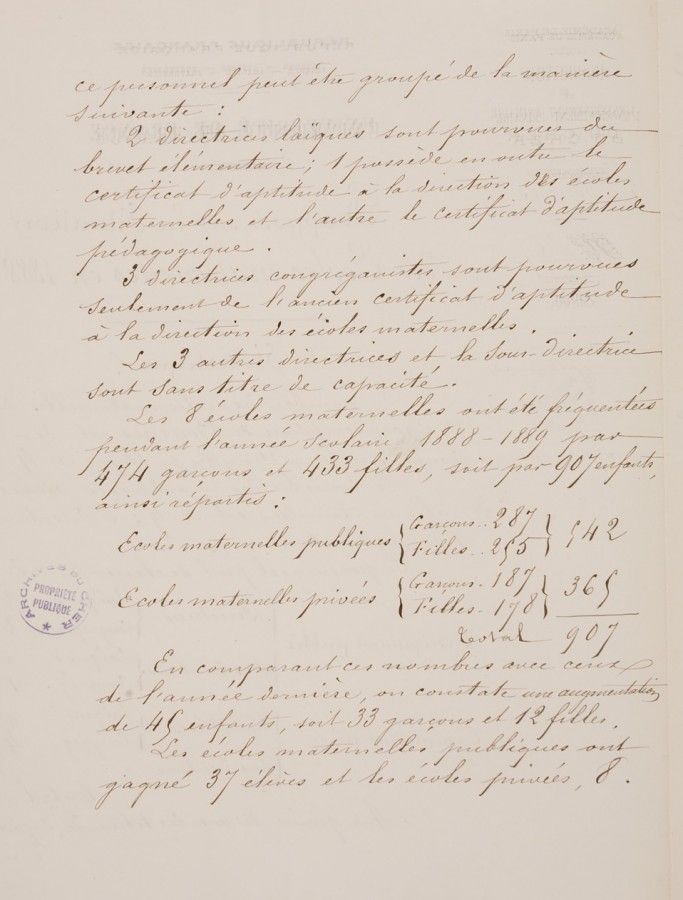 ce personnel peut être groupé de la manière
suivante :
2 directrices laïques sont pourvues du
brevet élémentaire ; 1 possède en outre le
certificat d'aptitude à la direction des écoles
maternelles et l'autre le certificat d'aptitude
pédagogique .
3 directrices congréganistes sont pourvues
seulement de l'ancien certificat d'aptitude
à la direction des écoles maternelles .
Les 3 autres directrices et la Sous-Directrice
sont sans titre de capacité .
Les 8 écoles maternelles ont été fréquentées
pendant l'année scolaire 1888-1889 par
474 garçons et 433 filles, soit par 907 enfants,
ainsi répartis :
Ecoles maternelles publiques { Garçons.. 287 } 542
Filles.. 255
Ecoles maternelles privées { Garçons. 187 } 365
Filles. 178
Total 907
En comparant ces nombres avec ceux
de l'année dernière, on constate une augmentation
de 45 enfants, soit 33 garçons et 12 filles.
Les écoles maternelles publiques ont
gagné 37 élèves et les écoles privées, 8 .
ARCHIVES DU CHER
PROPRIÉTÉ
PUBLIQUE